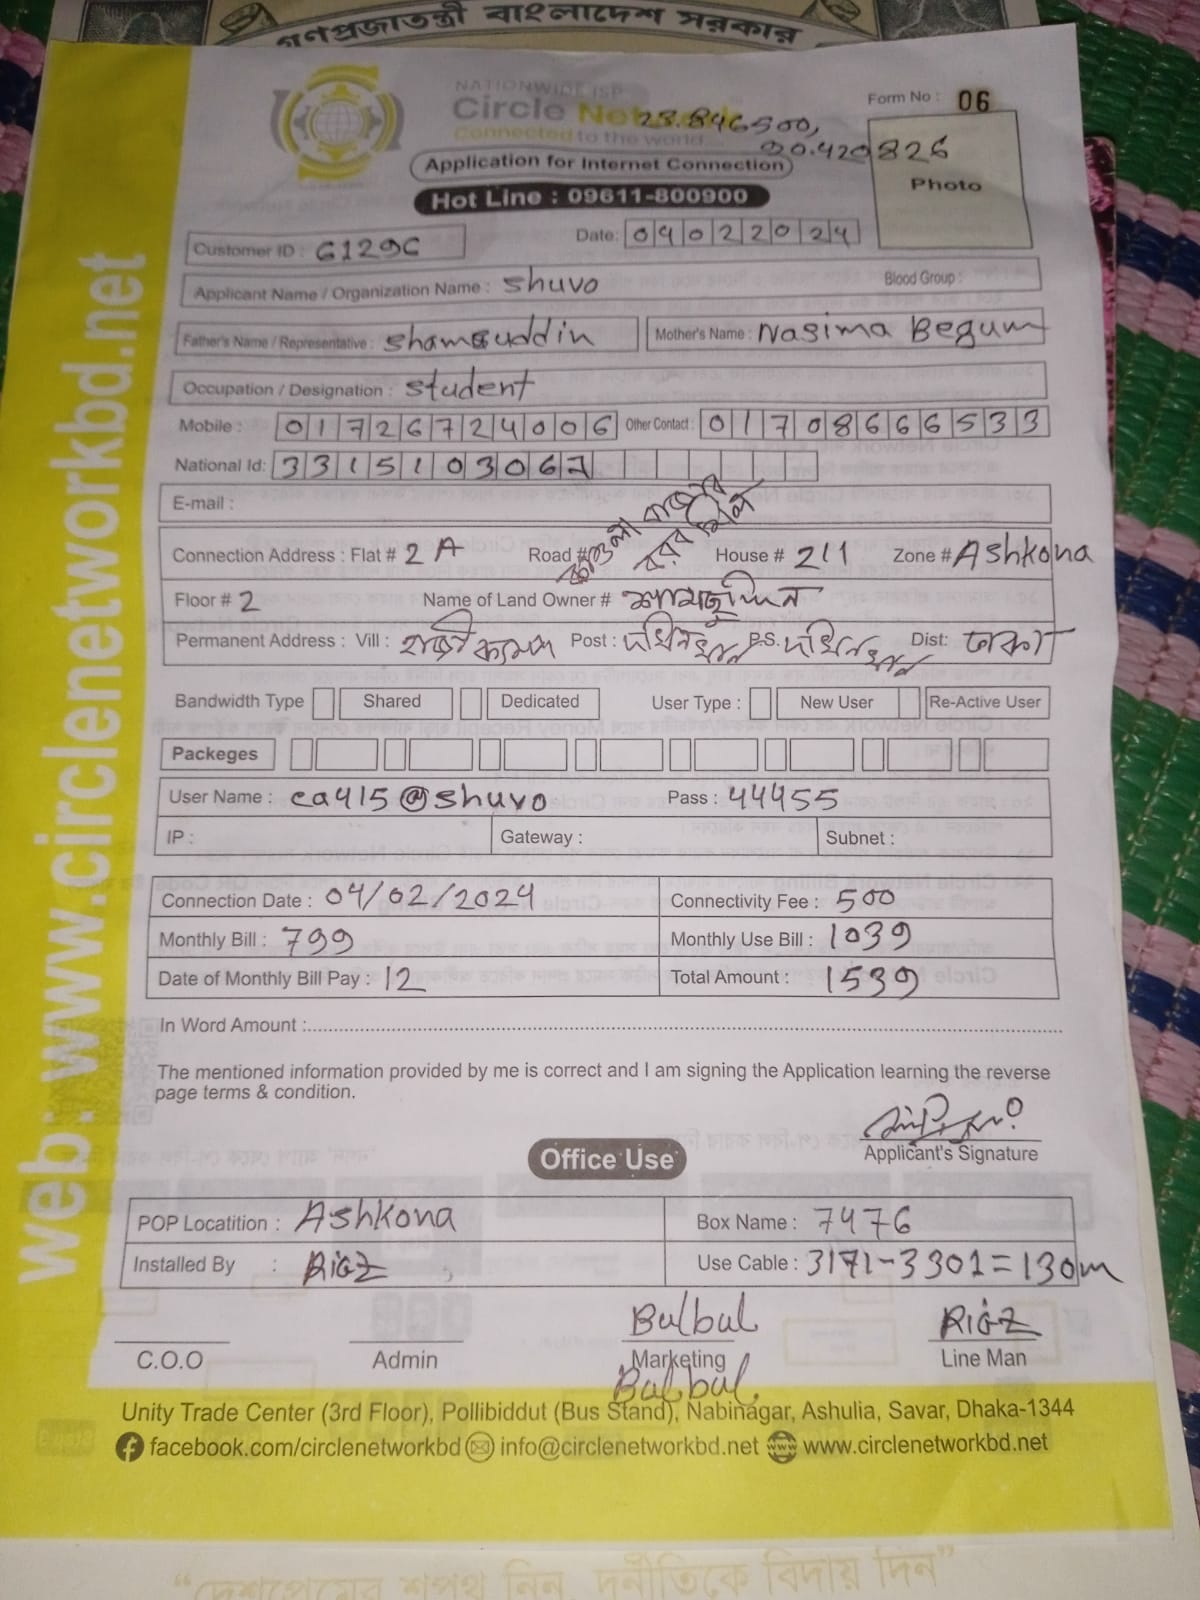 গণপ্রজাতন্ত্রী বাংলাদেশ সরকার
NATIONWIDE ISP
Circle Network
Connected to the world...
Form No : 06
23.846500,
90.420826
Application for Internet Connection
Photo
Hot Line : 09611-800900
Customer ID : G129C Date: 04022024
Applicant Name / Organization Name : Shuvo Blood Group :
Father's Name / Representative : Shamsuddin Mother's Name : Nasima Begum
Occupation / Designation : Student
Mobile : 01726724006 Other Contact : 01708666533
National Id: 3315103067
E-mail :
Connection Address : Flat # 2A Road # House # 211 Zone # Ashkona
Floor # 2 Name of Land Owner #
Permanent Address : Vill : Post : P.S. Dist: ঢাকা
Bandwidth Type Shared Dedicated User Type : New User Re-Active User
Packeges
User Name : ca415@shuvo Pass : 44455
IP : Gateway : Subnet :
Connection Date : 04/02/2024 Connectivity Fee : 500
Monthly Bill : 799 Monthly Use Bill : 1039
Date of Monthly Bill Pay : 12 Total Amount : 1539
In Word Amount :
The mentioned information provided by me is correct and I am signing the Application learning the reverse
page terms & condition.
Applicant's Signature
Office Use
POP Locatition : Ashkona Box Name : 7476
Installed By : Riaz Use Cable : 3171-3301=130m
Bulbul Riaz
C.O.O Admin Marketing Line Man
Bulbul.
Unity Trade Center (3rd Floor), Pollibiddut (Bus Stand), Nabinagar, Ashulia, Savar, Dhaka-1344
facebook.com/circlenetworkbd info@circlenetworkbd.net www.circlenetworkbd.net
web: www.circlenetworkbd.net
“দেশপ্রেমের শপথ নিন, দুর্নীতিকে বিদায় দিন”